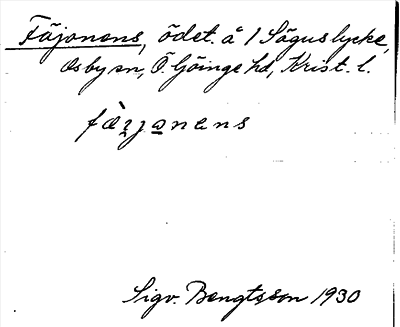 Fäjonens, ödet. å 1 Såguslycke,
Osby sn, Ö. Göinge hd, Krist. l.
fà꭛ȷa̲nens
Sigv. Bengtsson 1930